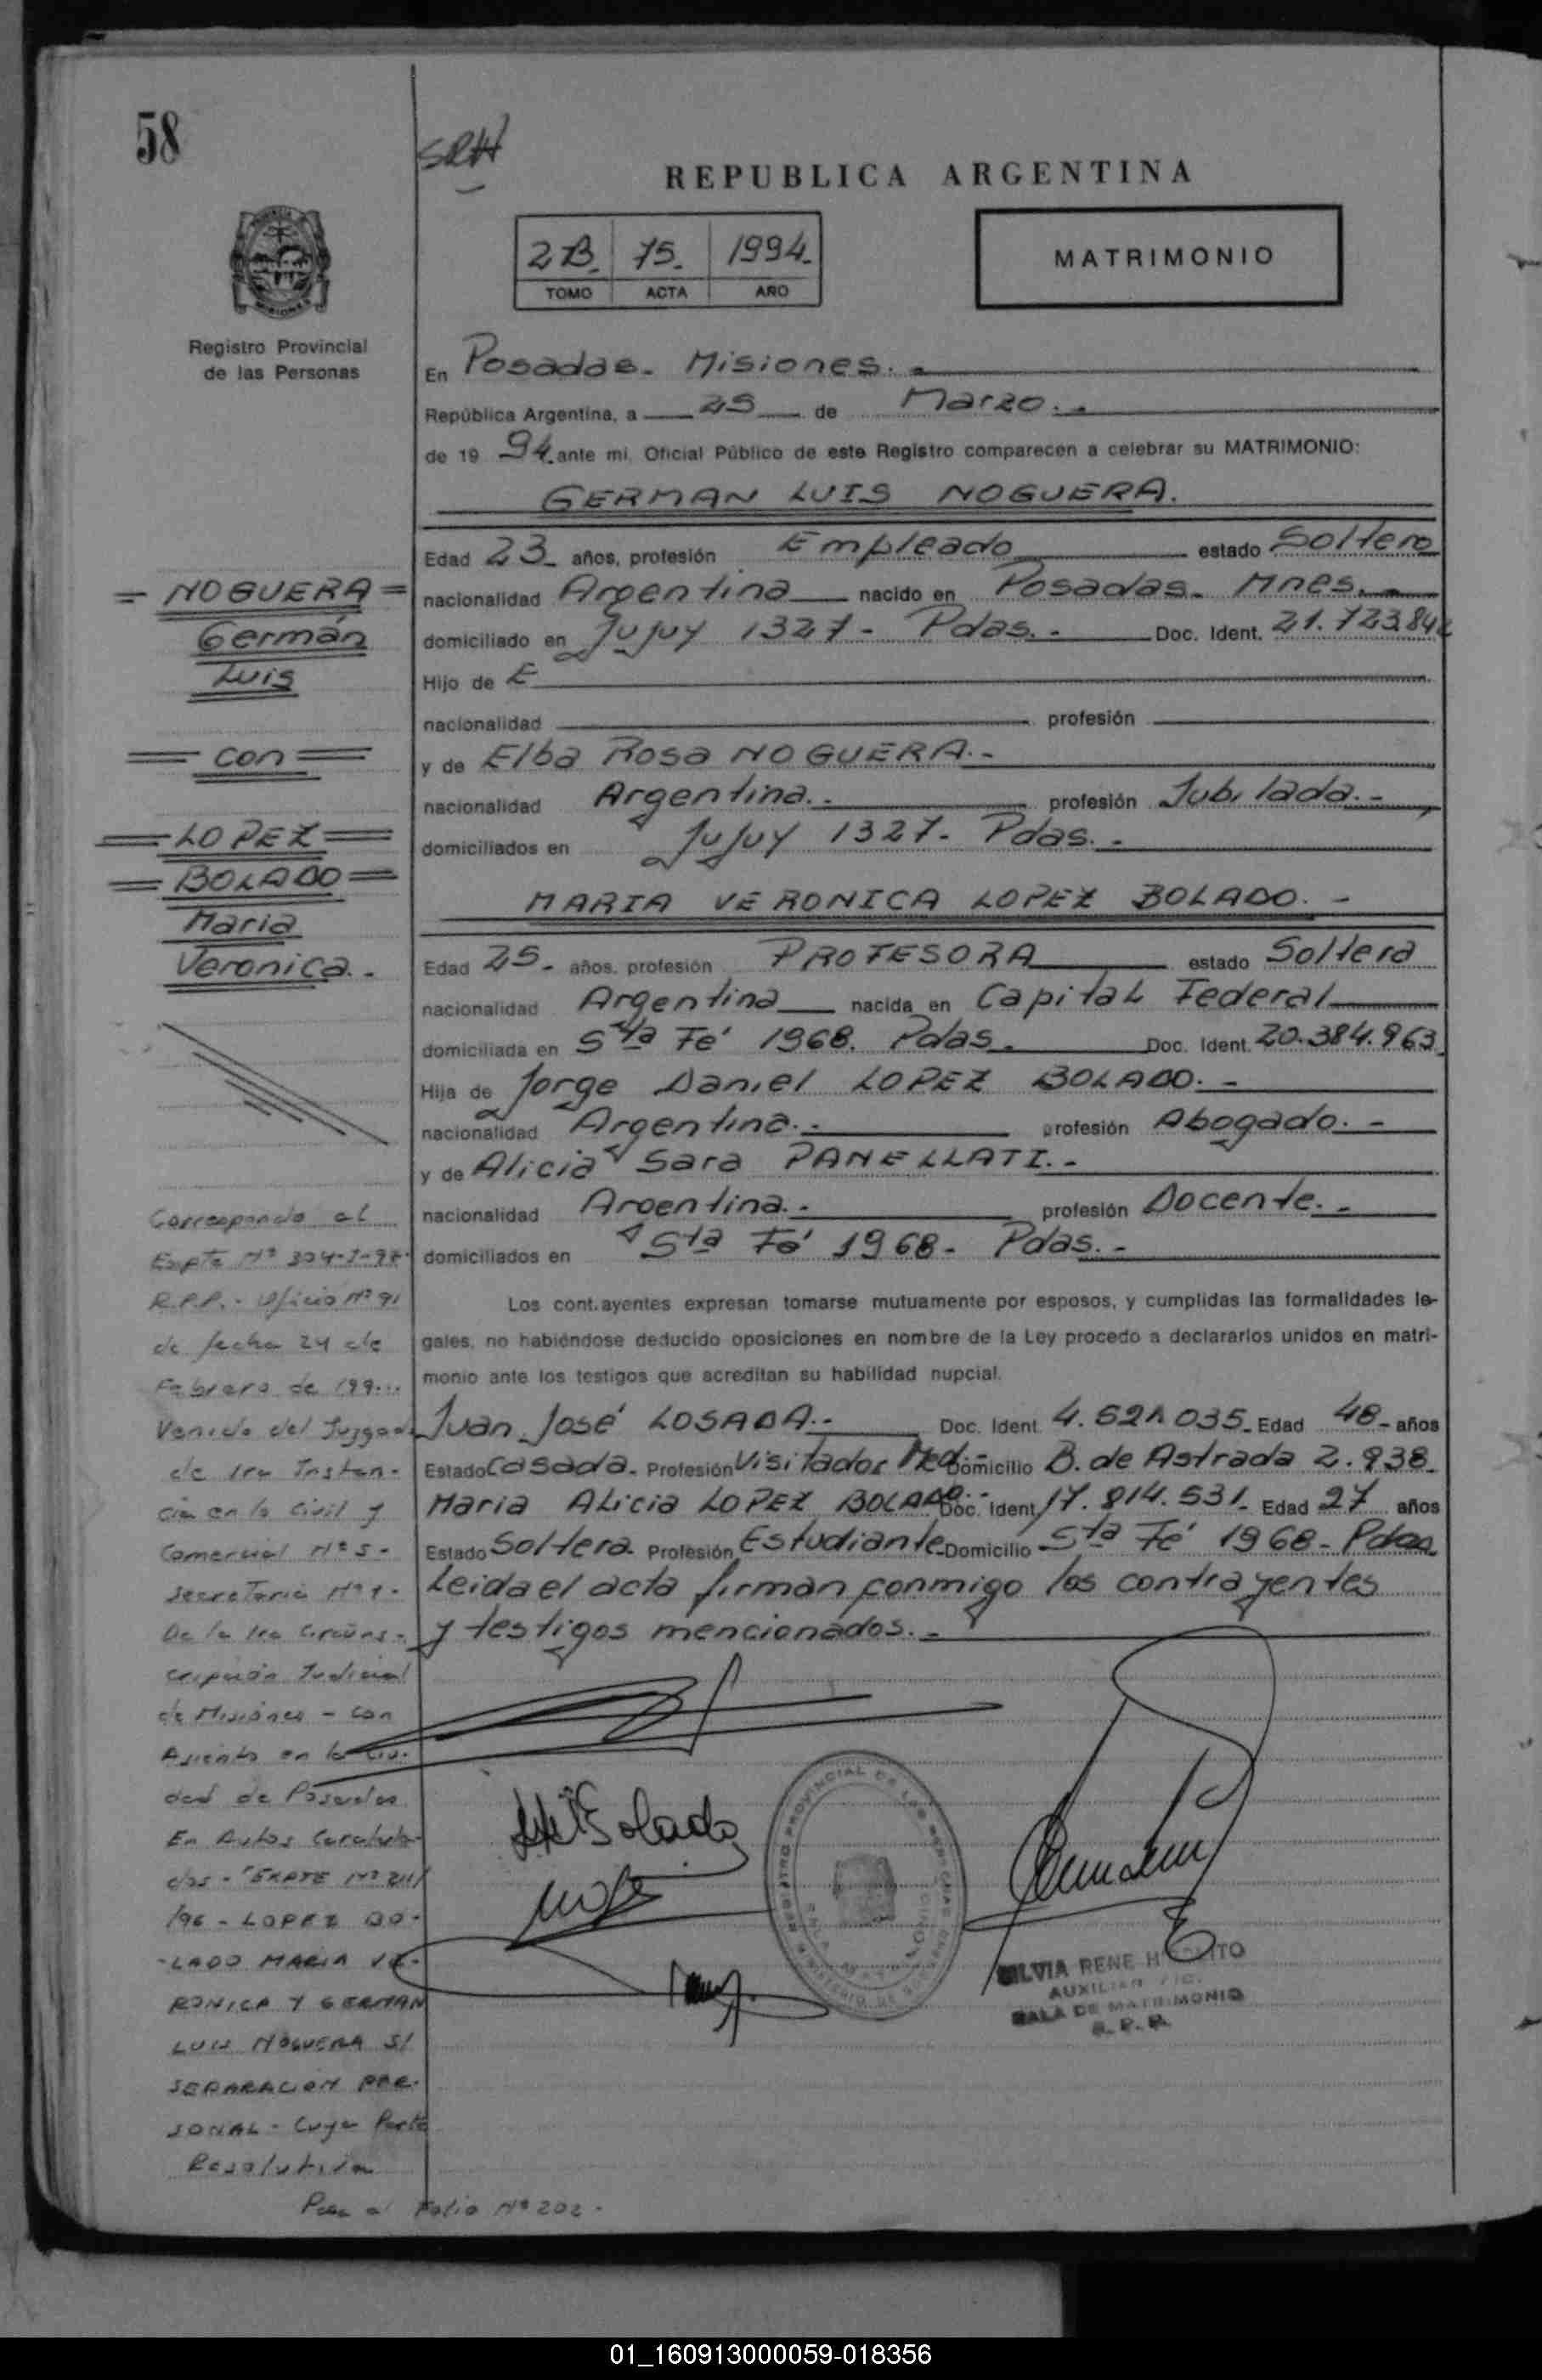 58
SRH
REPUBLICA ARGENTINA
2B. 75. 1994.
TOMO ACTA AÑO
MATRIMONIO
Registro Provincial
de las Personas
En Posadas. Misiones.-
República Argentina, a 25 de Marzo.-
de 19 94 ante mi, Oficial Público de este Registro comparecen a celebrar su MATRIMONIO:
GERMAN LUIS NOGUERA.
Edad 23 años, profesión Empleado estado Soltero
nacionalidad Argentina nacido en Posadas. Mnes.-
domiciliado en Jujuy 1327- Pdas.- Doc. Ident. 21.723.842
Hijo de E
nacionalidad profesión
y de Elba Rosa NOGUERA.-
nacionalidad Argentina.- profesión Jubilada.-
domiciliados en Jujuy 1327- Pdas.-
MARIA VERONICA LOPEZ BOLADO.-
Edad 25- años, profesión PROFESORA estado Soltera
nacionalidad Argentina nacida en Capital Federal
domiciliada en Sta Fé 1968. Pdas. Doc. Ident. 20.384.963
Hija de Jorge Daniel LOPEZ BOLADO.-
nacionalidad Argentina.- profesión Abogado.-
y de Alicia Sara PANELLATI.-
nacionalidad Argentina.- profesión Docente.-
domiciliados en Sta Fé 1968- Pdas.-
Los contrayentes expresan tomarse mutuamente por esposos, y cumplidas las formalidades le-
gales, no habiéndose deducido oposiciones en nombre de la Ley procedo a declararlos unidos en matri-
monio ante los testigos que acreditan su habilidad nupcial.
Juan José LOSADA.- Doc. Ident. 4.521.035- Edad 48- años
Estado Casada- Profesión Visitador Med.- Domicilio B. de Astrada 2.938-
Maria Alicia LOPEZ BOLADO.- Doc. Ident. 17.814.531- Edad 27 años
Estado Soltera Profesión Estudiante- Domicilio Sta Fé 1968- Pdas
Leida el acta firman conmigo los contrayentes
y testigos mencionados.-
= NOGUERA =
Germán
Luis
= con =
= LOPEZ =
= BOLADO =
Maria
Veronica.-
Corresponde al
Expte Nº 304-J-97-
R.P.P.- Oficio Nº 91
de fecha 24 de
Febrero de 199
Venido del Juzgado
de 1ra Instan-
cia en lo Civil y
Comercial Nº 5-
Secretaria Nº 1-
De la 1ra Circuns-
cripción Judicial
de Misiones - con
Asiento en la Ciu-
dad de Posadas
En Autos Caratula-
dos - "EXPTE Nº 211/
/96 - LOPEZ BO-
-LADO MARIA VE-
RONICA Y GERMAN
LUIS NOGUERA S/
SEPARACION PER-
SONAL - Cuya Parte
Resolutiva
Pasa al Folio Nº 202-
SILVIA RENE
AUXILIAR
SALA DE MATRIMONIO
R. P. P.
01_160913000059-018356